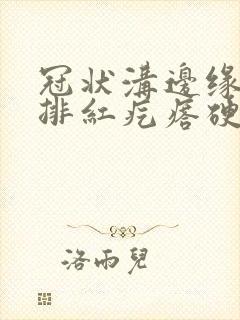 冠狀溝邊緣
排紅疙瘩硬
洛雨兒